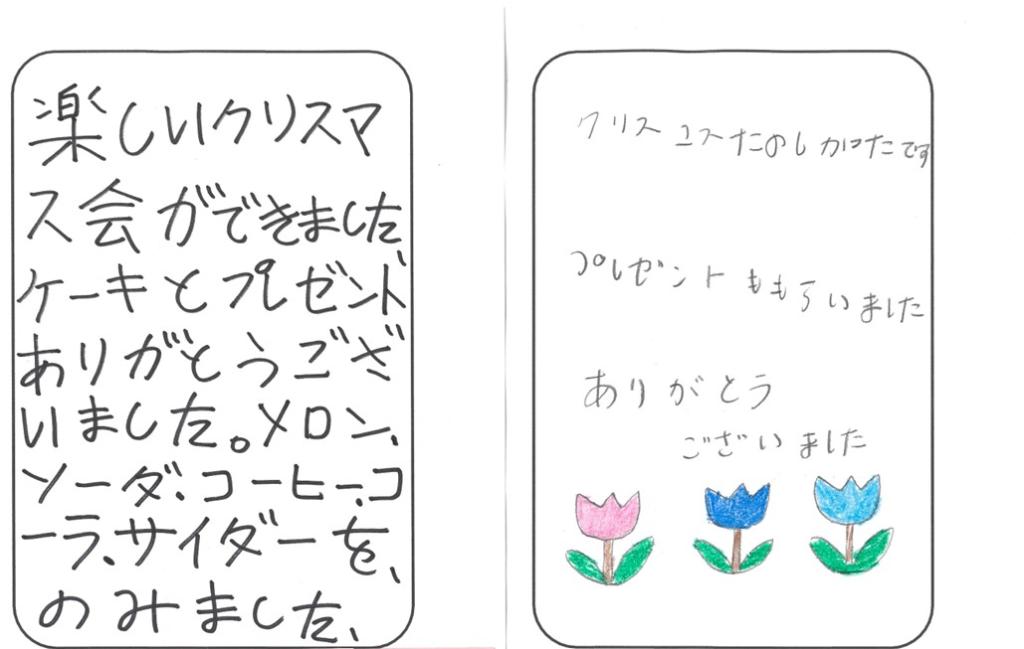 楽しいクリスマ
ス会ができました、
ケーキとプレゼント
ありがとうござ
いました。メロン、
ソーダ、コーヒー、コ
ーラ、サイダーを、
のみました、
クリスマスたのしかったです
プレゼントももらいました
ありがとう
ございました